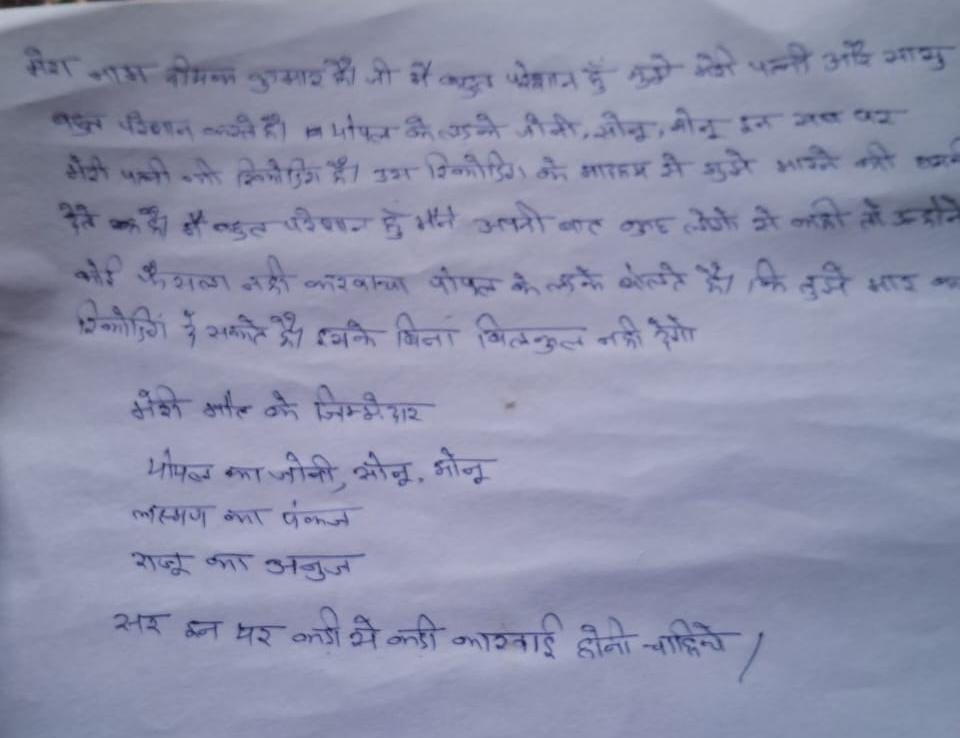 मेरा नाम दीपक कुमार है। जी मैं बहुत परेशान हुँ मुझे मेरी पत्नी और सासु
बहुत परेशान करते है। पोपल के लडके जोनी, सोनू, मोनू इन सब पर
मेरी पत्नी की रिकोडिंग है। उस रिकोडिंग के माध्यम से मुझे मारने की
देते है। मैं बहुत परेशान हुँ मैने अपनी बात कुछ लोगो से कही तो उन्होने
कोई फैसला नही करवाया पोपल के लडके बोलते है। कि तुझे मार कर
रिकोडिंग दे सकते है। इसके बिना बिलकुल नही देंगे
मेरी मौत के जिम्मेदार
पोपल का जोनी, सोनू, मोनू
लक्ष्मण का पंकज
राजू का अनुज
सर इन पर कडी से कडी कारवाई होनी चाहिये /